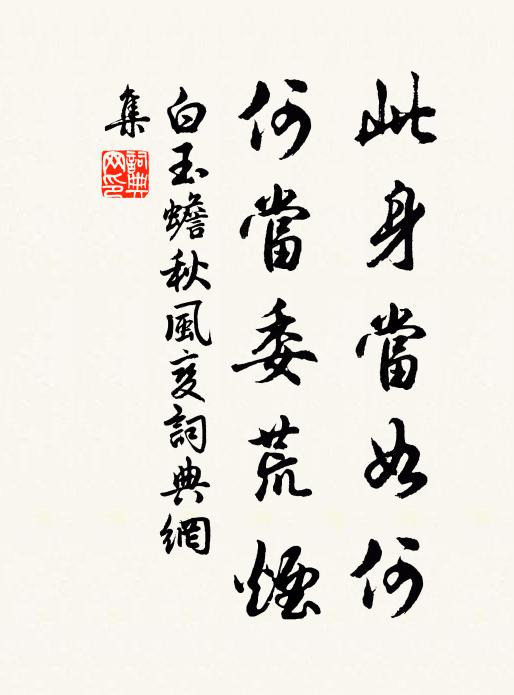 此身當如何
何當委荒煙
白玉蟾秋風变詞典網
集
詞典網印